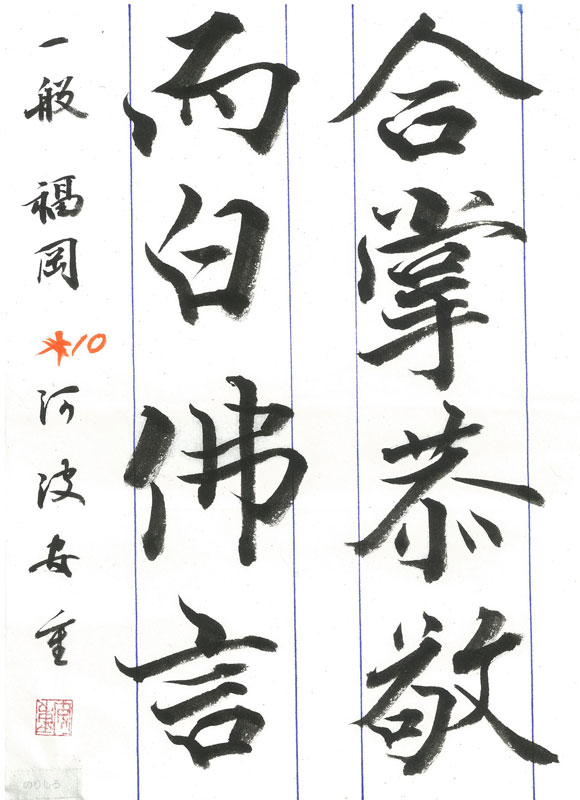 合掌恭敬
而白佛言
一般 福岡 *10 河波安重
のりしろ